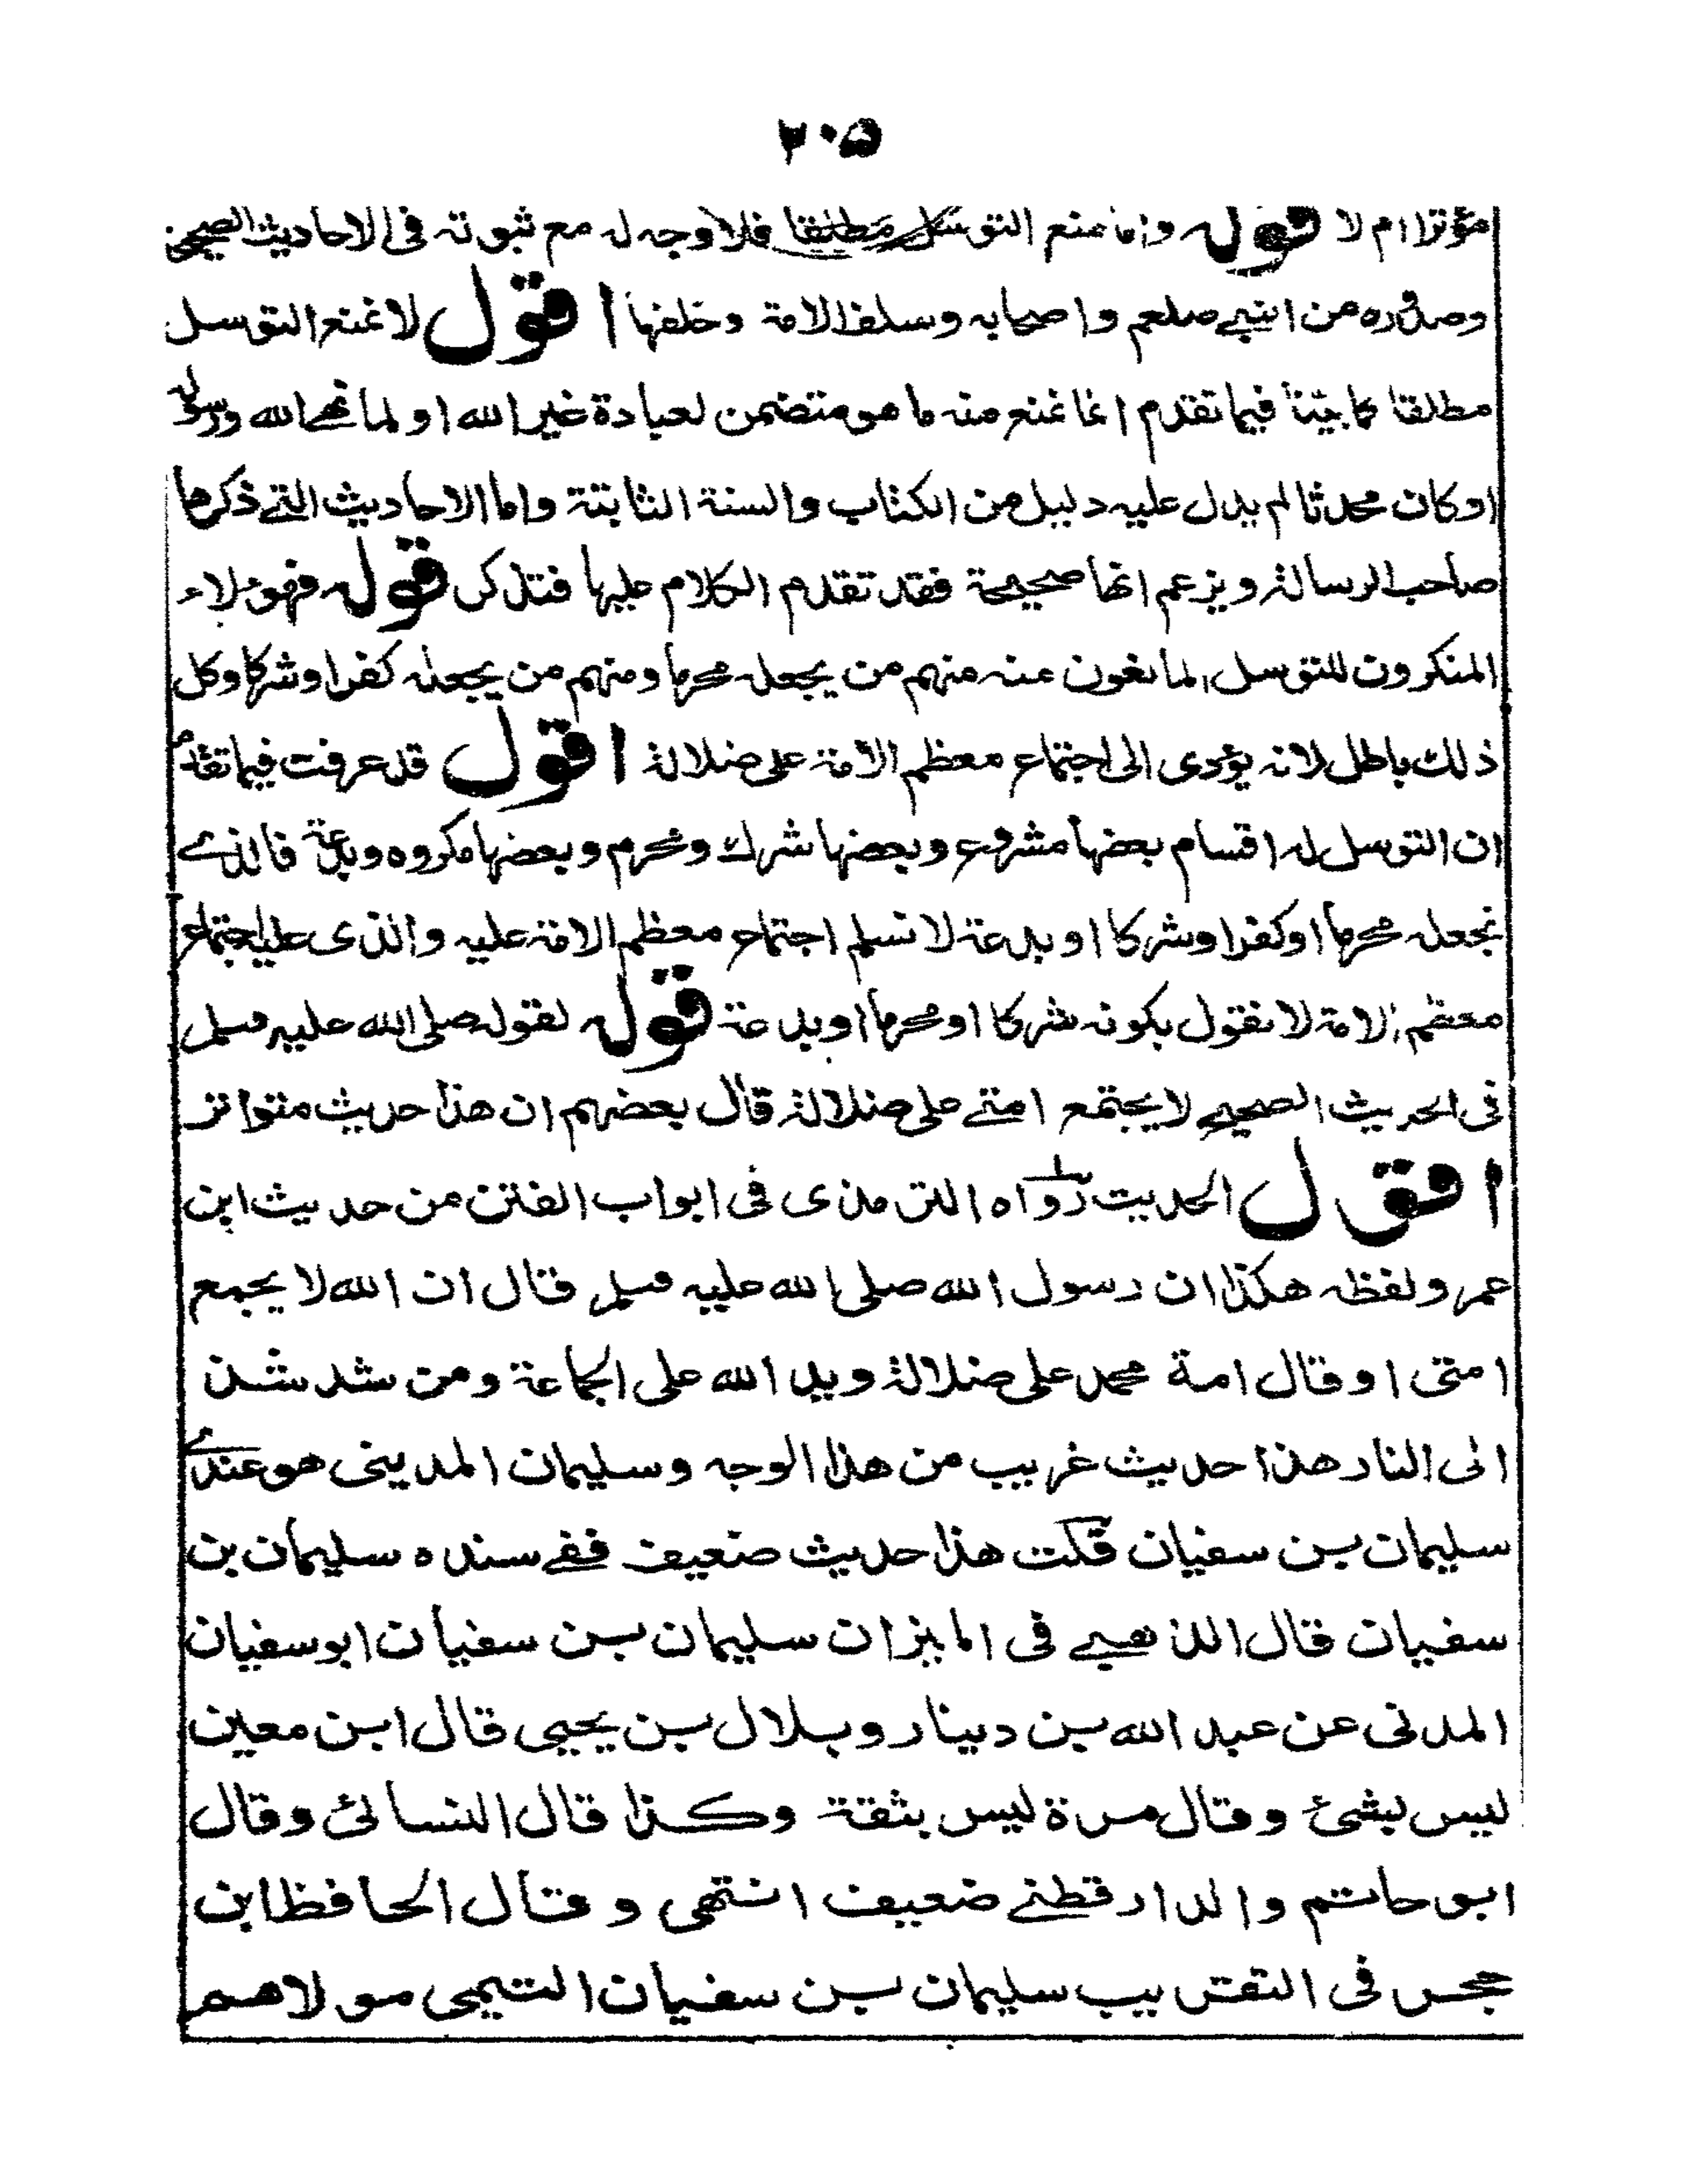 ٢٠٥
مؤثرا ام لا قوله واما منع التوسل مطلقا فلا وجه له مع ثبوته فى الاحاديث الصحيحة
وصدوره من النبي صلعم واصحابه وسلف الامة وخلفها اقول لا نمنع التوسل
مطلقا كما بيّنا فيما تقدم انما نمنع منه ما هو متضمن لعبادة غير الله او لما نهى الله ورسوله
او كان محدثا لم يدل عليه دليل من الكتاب والسنة الثابتة واما الاحاديث التي ذكرها
صاحب الرسالة ويزعم انها صحيحة فقد تقدم الكلام عليها فتذكر قوله فهؤلاء
المنكرون للتوسل المانعون عنه منهم من يجعله محرما ومنهم من يجعله كفرا وشركا وكل
ذلك باطل لانه يؤدى الى اجتماع معظم الأمة على ضلالة اقول قد عرفت فيما تقدم
ان التوسل له اقسام بعضها مشروع وبعضها شرك ومحرم وبعضها مكروه وبدعة فالذي
نجعله محرما او كفرا وشركا او بدعة لا نسلم اجتماع معظم الامة عليه والذى عليه اجتماع
معظم الامة لا نقول بكونه شركا او محرما او بدعة قوله لقوله صلى الله عليه وسلم
فى الحديث الصحيح لا يجتمع امتي على ضلالة قال بعضهم ان هذا حديث متواتر
اقول الحديث رواه الترمذى فى ابواب الفتن من حديث ابن
عمر ولفظه هكذا ان رسول الله صلى الله عليه وسلم قال ان الله لا يجمع
امتى او قال امة محمد على ضلالة ويد الله على الجماعة ومن شذ شذ
الى النار هذا حديث غريب من هذا الوجه وسليمان المدينى هو عندي
سليمان بن سفيان قلت هذا حديث ضعيف ففي سنده سليمان بن
سفيان قال الذهبي فى الميزان سليمان بن سفيان ابو سفيان
المدنى عن عبد الله بن دينار وبلال بن يحيى قال ابن معين
ليس بشئ وقال مرة ليس بثقة وكذا قال النسائى وقال
ابو حاتم والدارقطني ضعيف انتهى وقال الحافظ ابن
حجر فى التقريب سليمان بن سفيان التيمى مولاهم